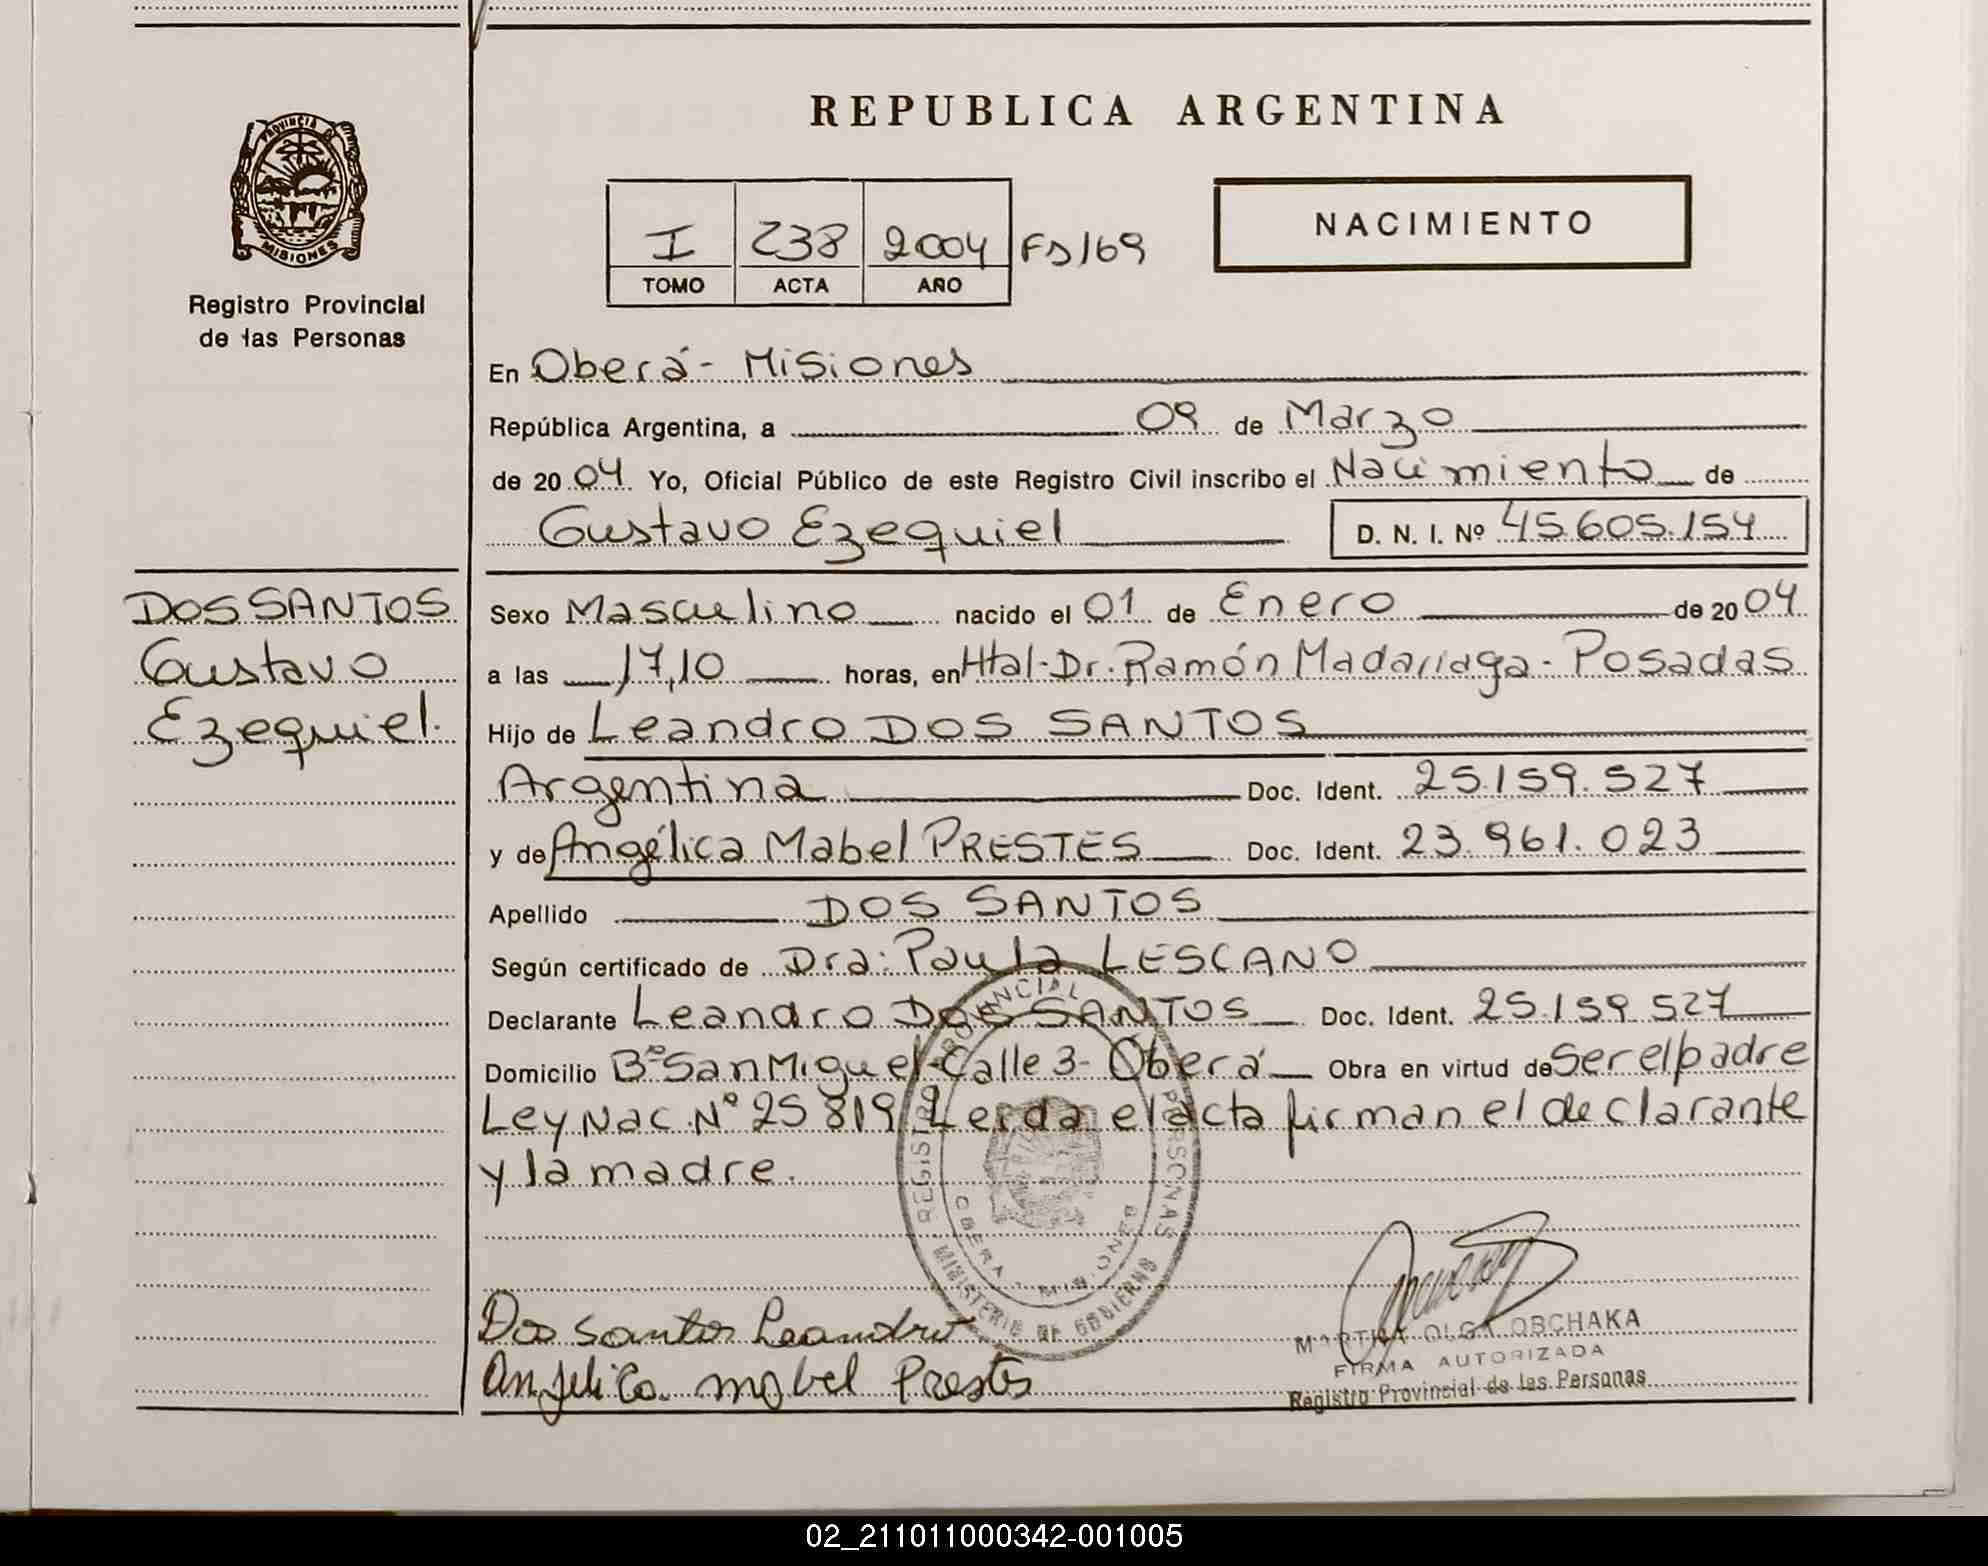 REPUBLICA ARGENTINA
PROVINCIA D
MISIONES
Registro Provincial
de las Personas
I 238 2004 Fº 169
TOMO ACTA AÑO
NACIMIENTO
En Oberá - Misiones
República Argentina, a 09 de Marzo
de 20 04 Yo, Oficial Público de este Registro Civil inscribo el Nacimiento de
Gustavo Ezequiel D. N. I. Nº 45.605.154
DOS SANTOS
Gustavo
Ezequiel.
Sexo Masculino nacido el 01 de Enero de 20 04
a las 17,10 horas, en Htal-Dr. Ramón Madariaga - Posadas
Hijo de Leandro DOS SANTOS
Argentina Doc. Ident. 25.159.527
y de Angélica Mabel PRESTES Doc. Ident. 23.961.023
Apellido DOS SANTOS
Según certificado de Dra: Paula LESCANO
Declarante Leandro DOS SANTOS Doc. Ident. 25.159.527
Domicilio Bº San Miguel - Calle 3 - Oberá Obra en virtud de Ser el padre
Ley Nac. Nº 25 819 Leída el acta firman el declarante
y la madre.
REGISTRO PROVINCIAL PERSONAS
OBERA - MISIONES
MINISTERIO DE GOBIERNO
Dos Santos Leandro
Anjelica mabel Prestes
MARTHA OLGA OBCHAKA
FIRMA AUTORIZADA
Registro Provincial de las Personas
02_211011000342-001005